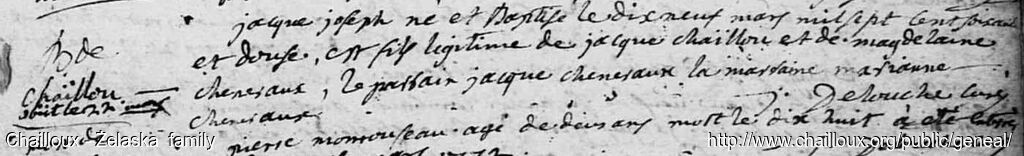 jacque joseph né et Baptisé le dix neuf mars mil sept cent soixante
B de
et douse, est fils legitime de jacque chaillou et de magdelaine
chaillou
cheneraux, le parrain jacque cheneraux la marraine marianne
cheneraux
Delouche curé
pierre monrouseau agé de deux ans mort le dix huit a été
Chailloux - Żelaska family
http://www.chailloux.org/public/geneal/